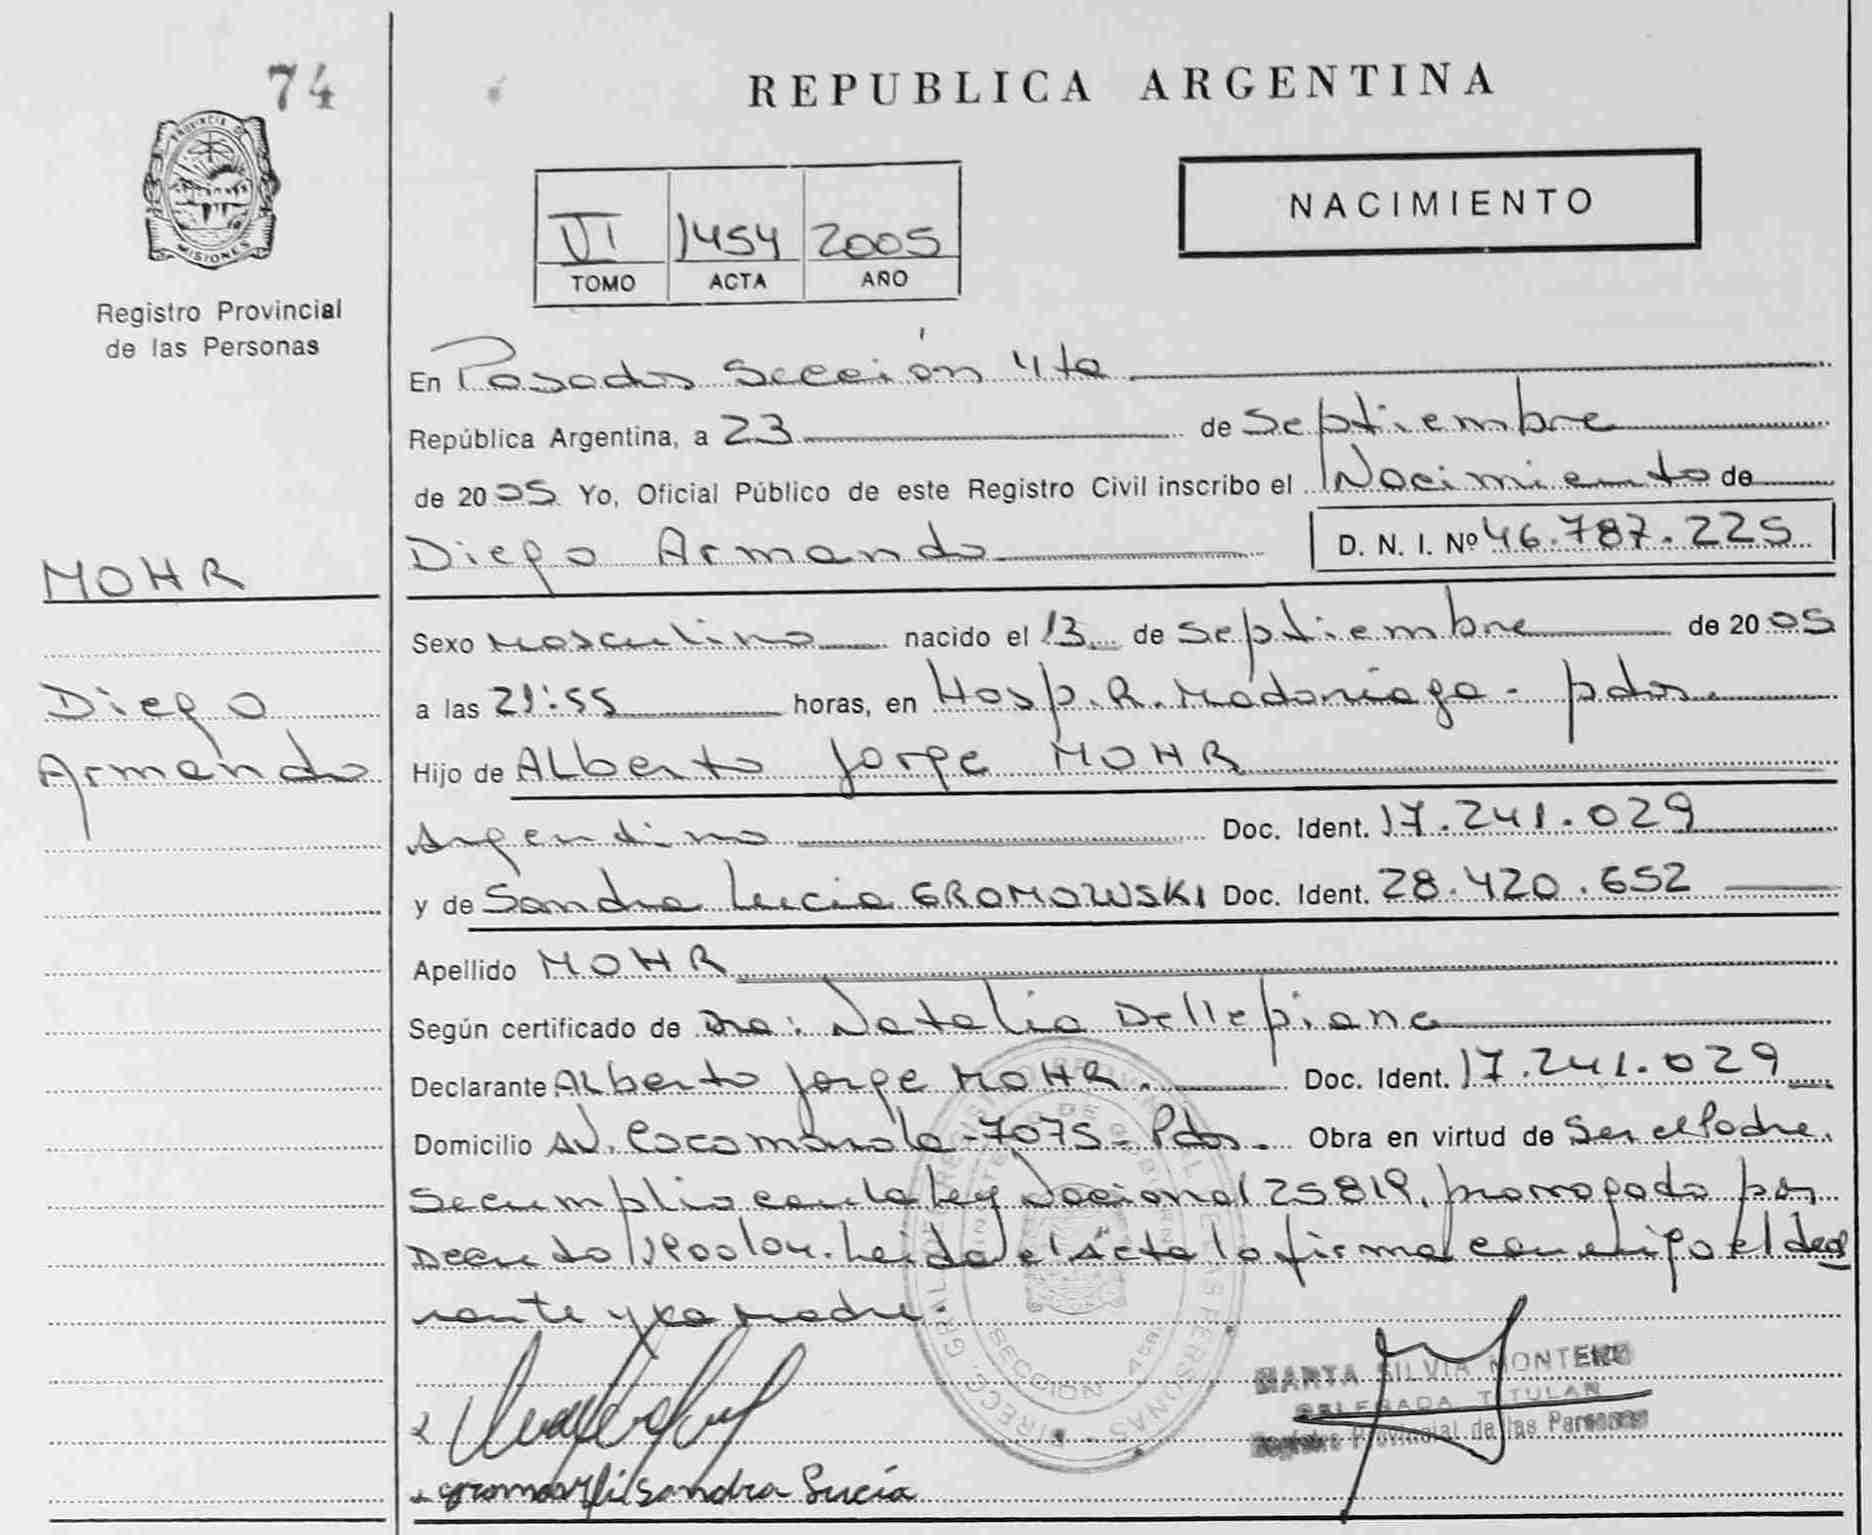 74
REPUBLICA ARGENTINA
PROVINCIA DE
MISIONES
Registro Provincial
de las Personas
NACIMIENTO
VI 1454 2005
TOMO ACTA AÑO
En Posadas Sección 4ta
República Argentina, a 23 de Septiembre
de 2005 Yo, Oficial Público de este Registro Civil inscribo el Nacimiento de
Diego Armando D. N. I. Nº 46.787.225
MOHR
Diego
Armando
Sexo Masculino nacido el 13 de Septiembre de 2005
a las 21:55 horas, en Hosp. R. Madariaga - pdas.
Hijo de Alberto Jorge MOHR
Argentino Doc. Ident. 17.241.029
y de Sandra Lucia GROMOWSKI Doc. Ident. 28.420.652
Apellido MOHR
Según certificado de Dra: Natalia Dellepiane
Declarante Alberto Jorge MOHR. Doc. Ident. 17.241.029
Domicilio Av. Cocomarola-7075-Pdas. Obra en virtud de Ser el Padre.
Se cumplio con la Ley Nacional 25819, prorrogado por
Decreto 1900/04. Leida el Acta la firma conmigo el decla
rante y la madre.
SECCION
MARTA SILVIA MONTERO
DELEGADA TITULAR
Registro Provincial de las Personas
Sandra Lucía